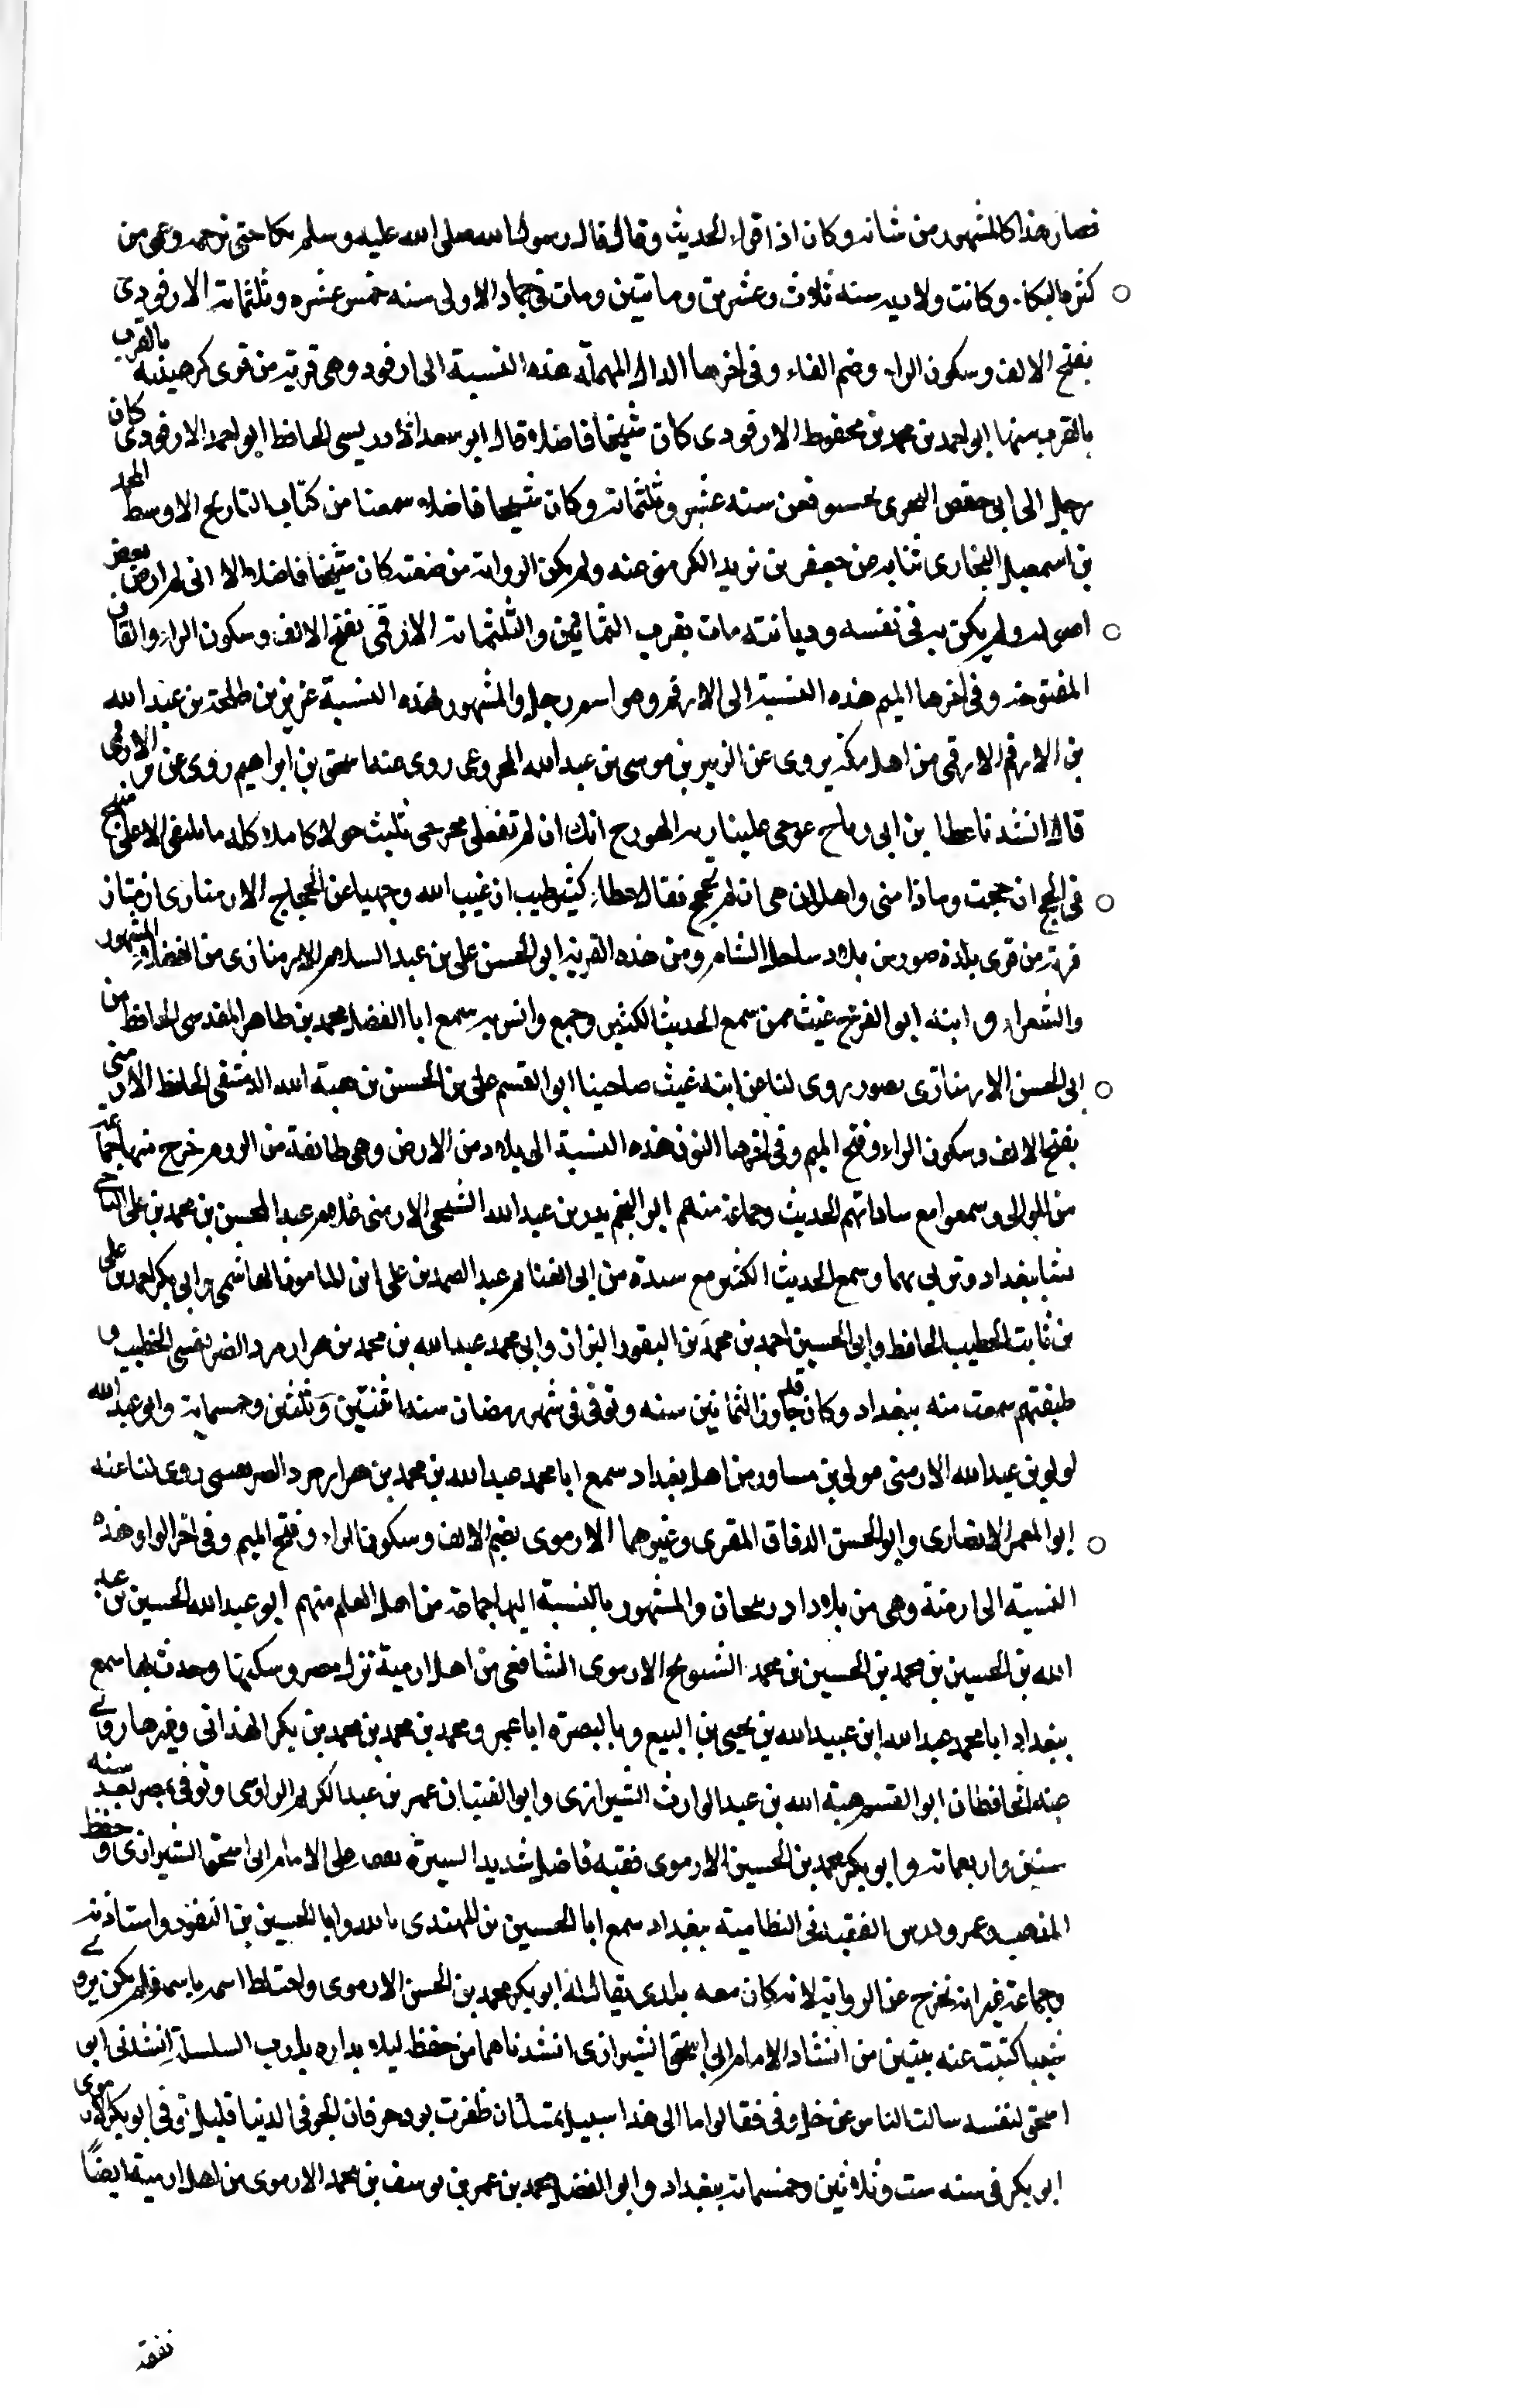 فصار هذا كالمشهور من شانه وكان اذا قراء الحديث وقال قال رسول الله صلى الله عليه وسلم بكا حتى نرحمه وعمى من
كثره البكاء وكانت ولادته سنه ثلاث وعشرين وماتين ومات فى جماد الاولى سنه خمس عشره وثلثماته الارفودى
بفتح الالف وسكون الراء وضم الفاء وفى اخرها الدال المهملة هذه النسبة الى ارفود وهى قرية من قرى كرمينيه بالقرب
بالقرب منها ابو احمد بن محمد بن محفوظ الارفودى كان شيخا فاضلا قال ابو سعد الادريسى الحافظ ابو احمد الارفودى كان
رحل الى ابى حفص سنه عشر وثلثماته وكان شيخا فاضلا سمعنا من كتاب التاريخ الاوسط لمحمد
بن اسمعيل البخارى ثنا به عن جعفر بن نزيد الكرمينى عنه ولم يكن الرواية من صنعته كان شيخا فاضلا الا انى لم ارض بعض
اصوله ولم يكن به فى نفسه وديانته مات بقرب الثمانين والثلثماته الارقمى بفتح الالف وسكون الراء والقاف
المفتوحه وفى اخرها الميم هذه النسبة الى الارقم وهو اسم رجل والمشهور بهذه النسبة عزيز بن طلحة بن عبد الله
بن الارقم الارقمى من اهل مكة يروى عن الزبير بن موسى بن عبد الله روى عنه اسحق بن ابراهيم روى عن الارقمى
قال انشدنا عطا بن ابى رباح عوجى علينا ربه الهودج انك ان لم تفعلى تحرجى ثلبث حولا كاملا كله ما نلتقى الا على منهج
فى الحج ان حجت وماذا منى واهله ان هى ان لم تحجج فقال عطاء كثير طيب ان غيب الله وجهها عن الحجاج الارمنازى ارمناز
قرية من قرى بلدة صور من بلاد ساحل الشام ومن هذه القرية ابو الحسن على بن عبد السلام الارمنازى من الفضلاء المشهورين
والشعراء وابنه ابو الفرج غيث ممن سمع الحديث الكثير وجمع وانس به سمع ابا الفضل محمد بن طاهر المقدسى الحافظ من
ابى الحسن الارمنازى بصور روى لنا عن ابنه غيث صاحبنا ابو القسم على بن الحسن بن هبة الله الدمشقى الحافظ الارمنى
بفتح الالف وسكون الراء وفتح الميم وفى اخرها النون هذه النسبة الى بلاد من الارض وهى طائفة من الروم خرج منها جماعة
من الموالى وسمعوا مع ساداتهم الحديث وجماعة منهم ابو النجم بدر بن عبد الله الشيحى الارمنى غلام عبد المحسن بن محمد بن على التاجر
نشا ببغداد وتربى بها وسمع الحديث الكثير مع سيده من ابى الغنائم عبد الصمد بن على ابن المامون الهاشمى وابى بكر احمد بن على
بن ثابت الخطيب الحافظ وابى الحسين احمد بن محمد بن النقور البزاز وابى محمد عبد الله بن محمد بن هزارمرد الصريفينى الخطيب و
طبقتهم سمعت منه ببغداد وكان قد جاوز الثمانين سنه وتوفى فى شهر رمضان سنه اثنتين وثلثين وخمسماته وابو عبد الله
لولو بن عبد الله الارمنى مولى بن مساور من اهل بغداد سمع ابا محمد عبد الله بن محمد بن هزارمرد الصريفينى روى لنا عنه
ابو المعمر الانصارى وابو الحسن الدقاق المقرى وغيرهما الارموى بضم الالف وسكون الراء وفتح الميم وفى اخر الواو هذه
النسبة الى ارمية وهى من بلاد ادربيجان والمشهور بالنسبة اليها جماعة من اهل العلم منهم ابو عبد الله الحسين بن عبد
الله بن الحسين بن محمد بن الحسين بن محمد الشويخ الارموى الشافعى من اهل ارمية نزل مصر وسكنها وحدث بها سمع
ببغداد ابا محمد عبد الله ابن عبيد الله بن يحيى بن البيع وبالبصره ابا عمرو محمد بن محمد بن محمد بن بكر الهذانى وغيرهما روى
عنه الحافظان ابو القسم هبة الله بن عبد الوارث الشيرازى وابو الفتيان عمر بن عبد الكريم الرواسى وتوفى بمصر بعد سنه
ستين واربعماته وابو بكر محمد بن الحسين الارموى فقيه فاضل شديد السيرة تفقه على الامام ابى اسحق الشيرازى وحفظ
المذهب وعمر ودرس الفقه فى النظامية ببغداد سمع ابا الحسين بن المهتدى بالله وابا الحسين بن النقور واستاذنه
وجماعة غير انه تحرج عن الرواية لانه كان معه بلدى يقال له ابو بكر محمد بن الحسن الارموى واختلط اسمه باسمه فلم يكن يروى
شيا كتبت عنه بيتين من انشاد الامام ابى اسحق الشيرازى انشدناهما من حفظ ليلا بداره بدرب السلسلة انشدنى ابو
اسحق لنفسه سالت الناس عن خل وفى فقالوا ما الى هذا سبيل تمسك ان ظفرت بود حر فان الحر فى الدنيا قليل وتوفى ابو بكر الارموى
ابو بكر فى سنه ست وثلاثين وخمسماته ببغداد وابو الفضل محمد بن عمر بن يوسف بن محمد الارموى من اهل ارمية ايضًا
نفقه